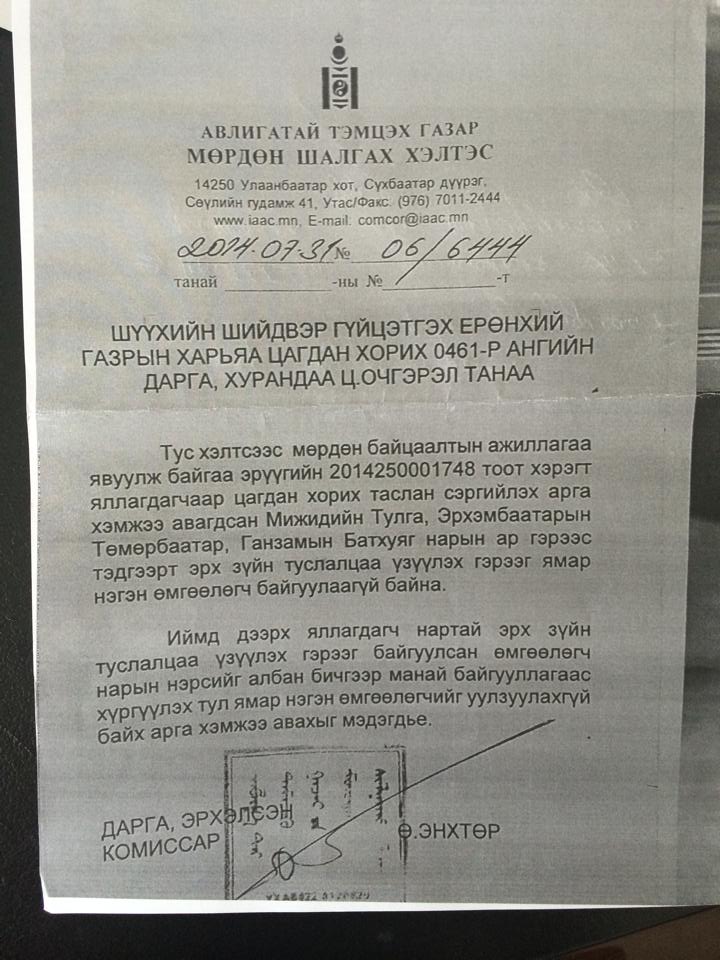 АВЛИГАТАЙ ТЭМЦЭХ ГАЗАР
МӨРДӨН ШАЛГАХ ХЭЛТЭС
14250 Улаанбаатар хот, Сүхбаатар дүүрэг,
Сөүлийн гудамж 41, Утас/Факс. (976) 7011-2444
www.iaac.mn, E-mail: comcor@iaac.mn
2014.07.31 № 06/6444
танай ___________-ны №___________-т
ШҮҮХИЙН ШИЙДВЭР ГҮЙЦЭТГЭХ ЕРӨНХИЙ
ГАЗРЫН ХАРЬЯА ЦАГДАН ХОРИХ 0461-Р АНГИЙН
ДАРГА, ХУРАНДАА Ц.ОЧГЭРЭЛ ТАНАА
Тус хэлтсээс мөрдөн байцаалтын ажиллагаа
явуулж байгаа эрүүгийн 2014250001748 тоот хэрэгт
яллагдагчаар цагдан хорих таслан сэргийлэх арга
хэмжээ авагдсан Мижидийн Тулга, Эрхэмбаатарын
Төмөрбаатар, Ганзамын Батхуяг нарын ар гэрээс
тэдгээрт эрх зүйн туслалцаа үзүүлэх гэрээг ямар
нэгэн өмгөөлөгч байгуулаагүй байна.
Иймд дээрх яллагдагч нартай эрх зүйн
туслалцаа үзүүлэх гэрээг байгуулсан өмгөөлөгч
нарын нэрсийг албан бичгээр манай байгууллагаас
хүргүүлэх тул ямар нэгэн өмгөөлөгчийг уулзуулахгүй
байх арга хэмжээ авахыг мэдэгдье.
ДАРГА, ЭРХЭЛСЭН
КОМИССАР Ө.ЭНХТӨР